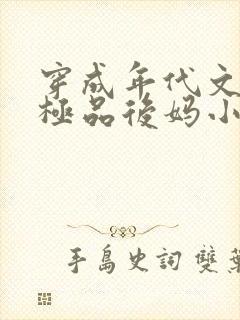 穿成年代文
極品後妈小
手島史詞 雙葉